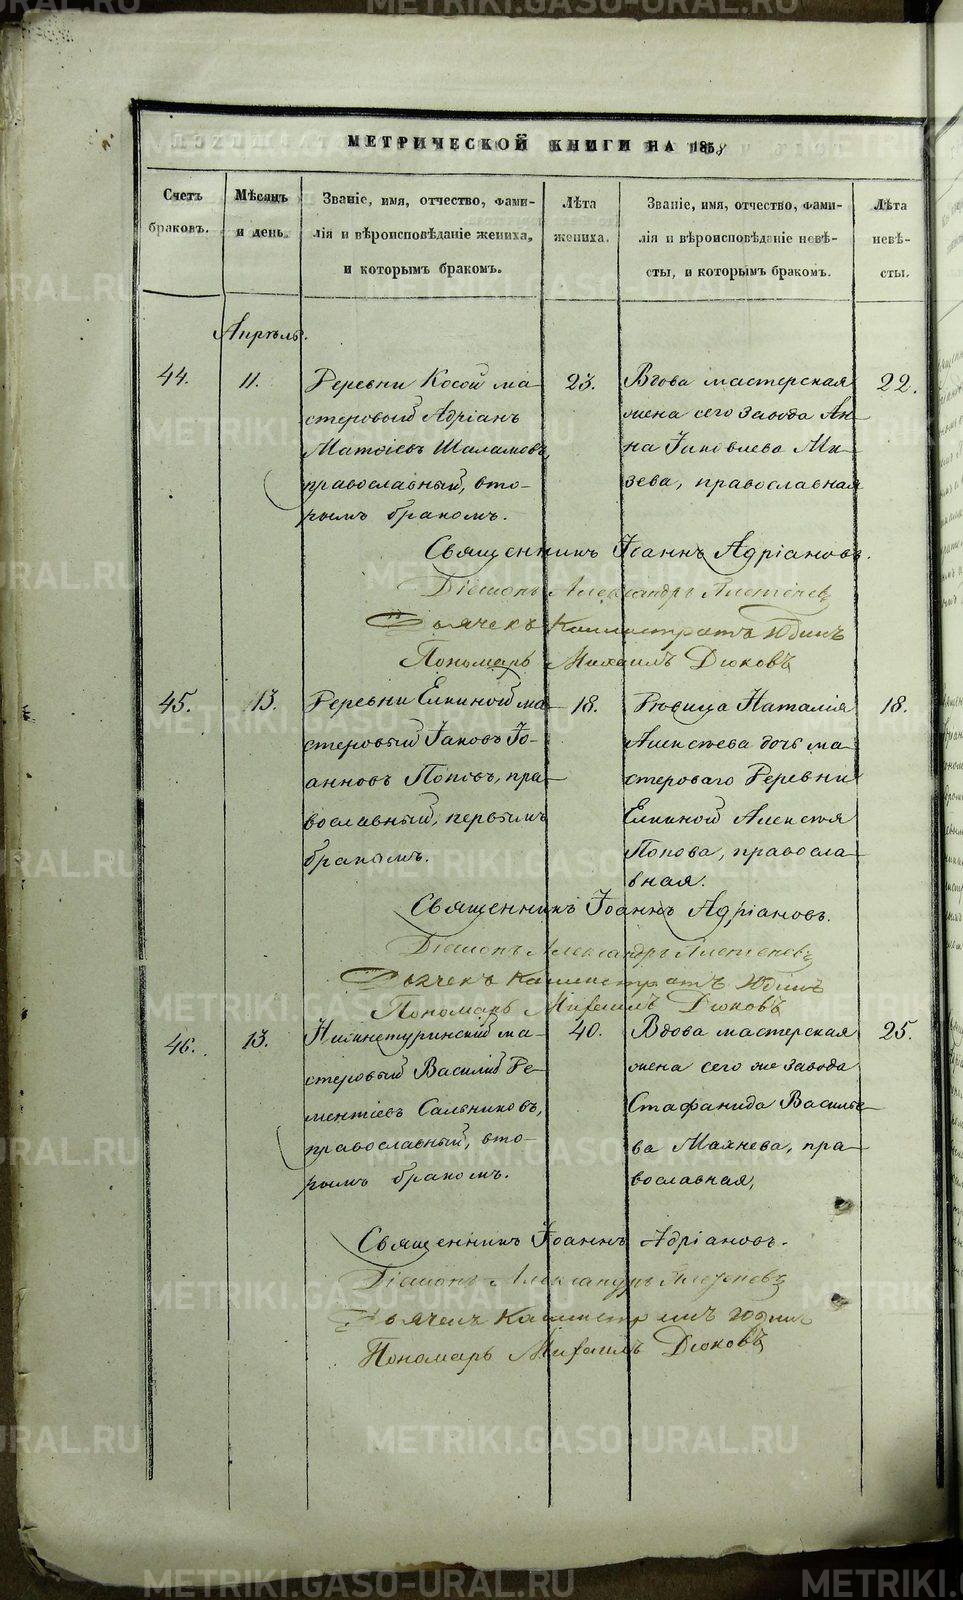 METRIKI.GASO-URAL.RU
МЕТРИЧЕСКОЙ КНИГИ НА 1858
Счетъ браковъ.
Мѣсяцъ и день.
Званіе, имя, отчество, фами-
лія и вѣроисповѣданіе жениха,
и которымъ бракомъ.
Лѣта жениха.
Званіе, имя, отчество, фами-
лія и вѣроисповѣданіе невѣ-
сты, и которымъ бракомъ.
Лѣта невѣ-
сты.
Апрѣль.
44.
11.
Деревни Косой ма-
стеровый Адріанъ
Матѳіевъ Шаламовъ,
православный, вто-
рымъ бракомъ.
23.
Вдова мастерская
жена сего завода Ан-
на Іаковлева Ми-
зева, православная
22.
Священникъ Іоаннъ Адріановъ.
Діаконъ Александръ
Дьячекъ Каллистратъ Юдинъ
Пономарь Михаилъ Дюковъ
45.
13.
Деревни Елкиной ма-
стеровый Іаковъ Іо-
анновъ Поповъ, пра-
вославный, первымъ
бракомъ.
18.
Дѣвица Наталія
Алексѣева дочь ма-
стероваго Деревни
Елкиной Алексѣя
Попова, правосла-
вная.
18.
Священникъ Іоаннъ Адріановъ.
Діаконъ Александръ
Дьячекъ Каллистратъ Юдинъ
Пономарь Михаилъ Дюковъ
46.
13.
Нижнетуринскій ма-
стеровый Василій Де-
ментіевъ Сальниковъ,
православный, вто-
рымъ бракомъ.
40.
Вдова мастерская
жена сего же завода
Стафанида Василье-
ва Махнева, пра-
вославная,
25.
Священникъ Іоаннъ Адріановъ.
Діаконъ Александръ
Дьячекъ Каллистратъ Юдинъ
Пономарь Михаилъ Дюковъ